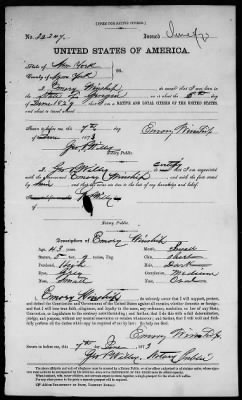 [FORM FOR NATIVE CITIZEN.]
No. 32207.
Issued June 9/73
UNITED STATES OF AMERICA.
State of New York
County of New York } ss.
I, Emory Winship do swear that I was born in the
State of on or about the 6th day
of June 1829 that I am a NATIVE AND LOYAL CITIZEN OF THE UNITED STATES,
and about to travel abroad.
Sworn to before me this 7th day
of June 1873
Emory Winship
Geo. P. Willis
Notary Public.
I, Geo. P. Willis certify that I am acquainted
with the Emory Winship and that the facts stated
by him are true to the best of my knowledge and belief.
Notary Public.
Description of Emory Winship
Age, 43 years.
Stature, 5 feet inches, Eng.
Forehead, High
Eyes, Grey
Nose, Small
Mouth, Small
Chin, Short
Hair, Dark
Complexion, Medium
Face, Oval
I, Emory Winship do solemnly swear that I will support, protect,
and defend the Constitution and Government of the United States against all enemies, whether domestic or foreign; and
that I will bear true faith, allegiance, and loyalty to the same, any ordinance, resolution, or law of any State, Convention,
or Legislature to the contrary notwithstanding; and further, that I do this with a full determination, pledge,
and purpose, without any mental reservation or evasion whatsoever; and further, that I will well and
faithfully perform all the duties which may be required of me by law: So help me God.
Emory Winship
Sworn to before me, this
7th day of June 1873
Geo. P. Willis, Notary Public